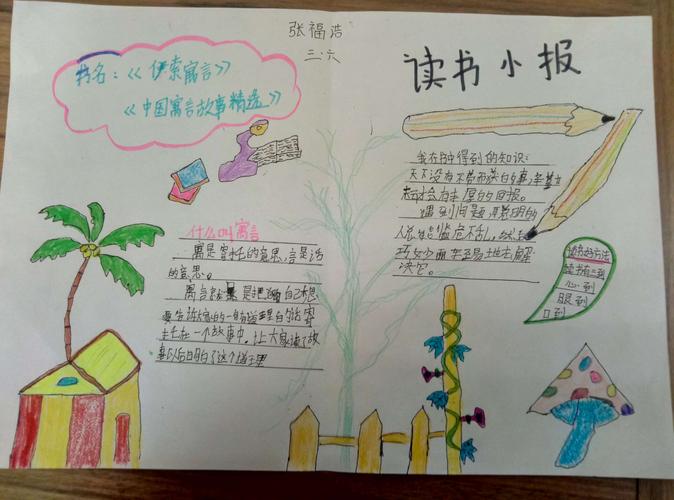 张福浩
三.六
书名:《伊索寓言》
《中国寓言故事精选》
读书小报
什么叫寓言
寓是寄托的意思,言是话
的意思。
寓言就是把自己想
要告诉大家的一的道理的话寄
托在一个故事中,让大家读了故
事以后明白了这个道理
我在书中得到的知识:
天下没有不劳而获的事,辛勤
劳动会有丰厚的回报。
遇到问题,聪明的
人总是临危不乱,然后
巧妙而 轻易地去解
决它。
读书好方法
读书有三到
心到
眼到
口到